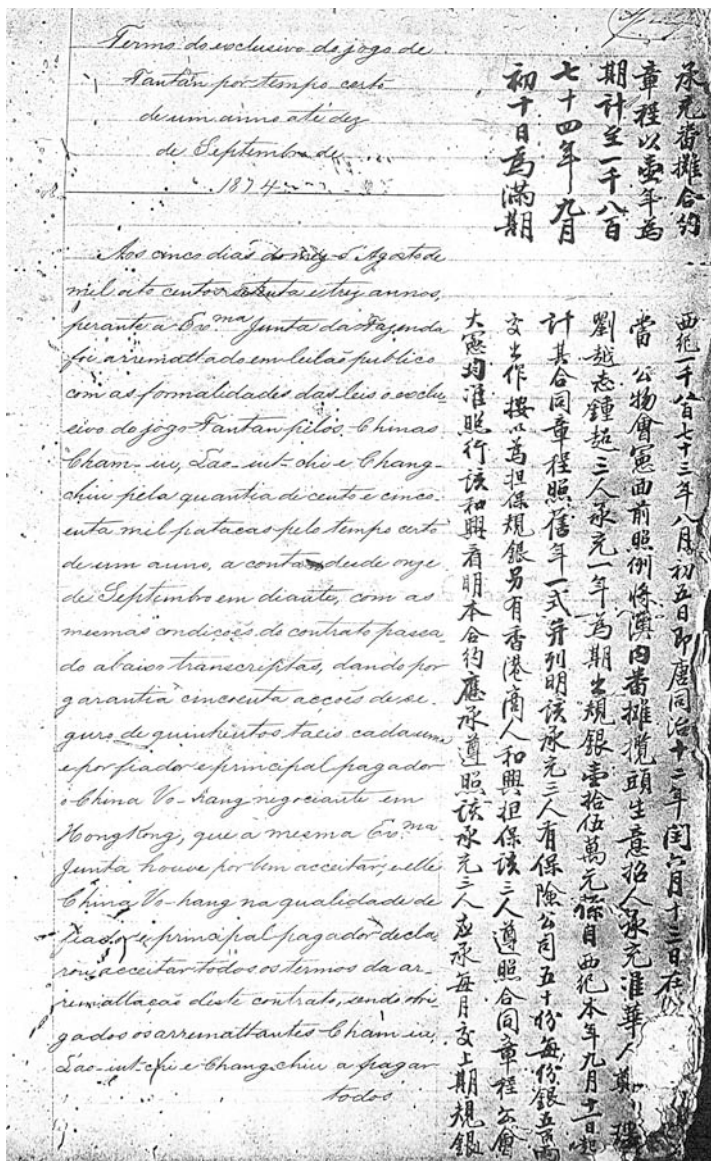 Termo do exclusivo do jogo de
Fantan por tempo certo
de um anno até dez
de Septembro de
1874
Aos cinco dias do mez d'Agosto de
mil oito centos setenta e trez annos,
perante a Ex.ma Junta da Fazenda
foi arremattado em leilaõ publico
com as formalidades das leis o exclu-
sivo do jogo Fantan pelos Chinas
Cham-iu, Lao-iut-chi e Chang-
chiu pela quantia de cento e cinco-
enta mil patacas pelo tempo certo
de um anno, a contar desde onze
de Septembro em diante, com as
mesmas condições do contrato passa-
do abaixo transcriptas, dando por
garantia cincoenta acções de se-
guro de quinhentos taeis cada uma
e por fiador e principal pagador
o China Vo-hang negociante em
HongKong, que a mesma Ex.ma
Junta houve por bem acceitar, e elle
China Vo-hang na qualidade de
fiador e principal pagador decla-
rou acceitar todos os termos da ar-
remattação deste contrato, sendo obri-
gados os arremattantes Cham-iu,
Lao-iut-chi e Chang-chiu a pagar
todos
承充番攤合約
章程以壹年為
期計至一千八百
七十四年九月
初十日為滿期
西紀一千八百七十三年八月初五日即唐同治十二年閏六月十三日在
當公物會憲面前照例將澳內番攤攬頭生意招人承充准華人
劉越志鍾超三人承充一年為期出規銀壹拾伍萬元係自西紀本年九月十一日起
計其合同章程照舊年一式并列明該承充三人有保險公司五十份每份銀五百両
交出作按以為担保規銀另有香港商人和興担保該三人遵照合同章程公會
大憲均准照行該和興看明本合約應承遵照該承充三人應承每月交上期規銀